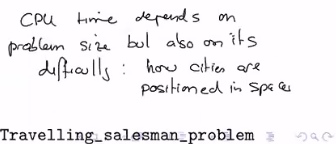 CPU time depends on
problem size but also on its
difficulty : how cities are
positioned in space
Travelling_salesman_problem